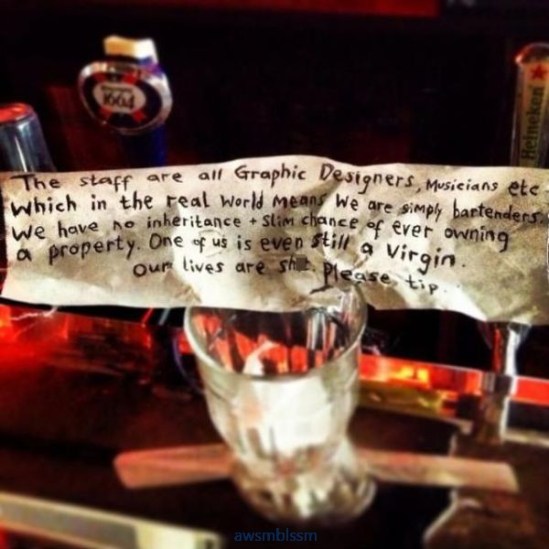 1664
Heineken
The staff are all Graphic Designers, Musicians etc.
Which in the real World Means We are simply bartenders.
We have no inheritance + Slim chance of ever owning
a property. One of us is even still a Virgin.
Our lives are sh!t. Please tip.
awsmblssm